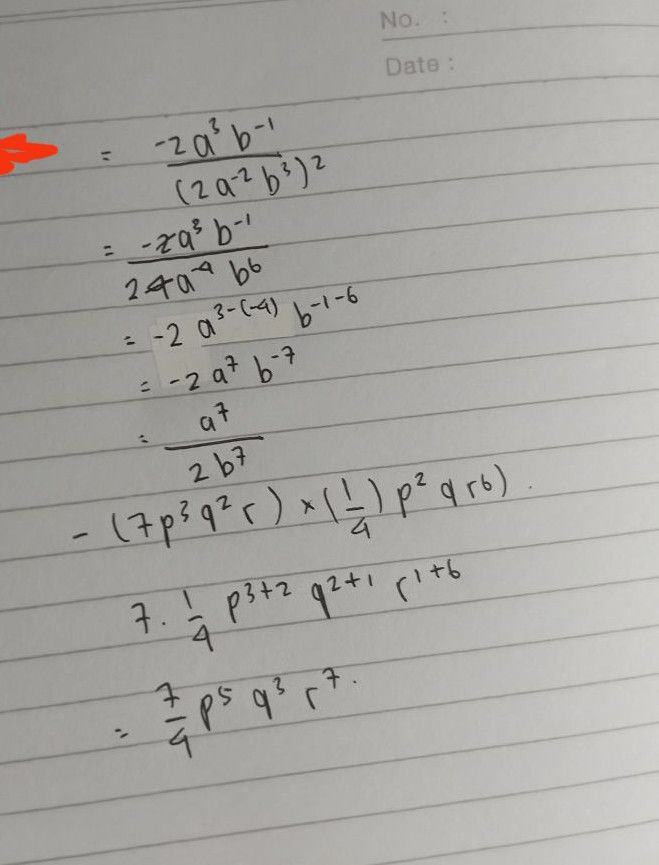 No. :
Date :
= -2a³ b⁻¹ / (2a⁻² b³)²
= -2a³ b⁻¹ / 24a⁻⁴ b⁶
= -2 a³⁻⁽⁻⁴⁾ b⁻¹⁻⁶
= -2 a⁷ b⁻⁷
= a⁷ / 2b⁷
- (7p³q²r) × (1/4) p² q r⁶) .
7 . 1/4 p³⁺² q²⁺¹ r¹⁺⁶
= 7/4 p⁵ q³ r⁷.